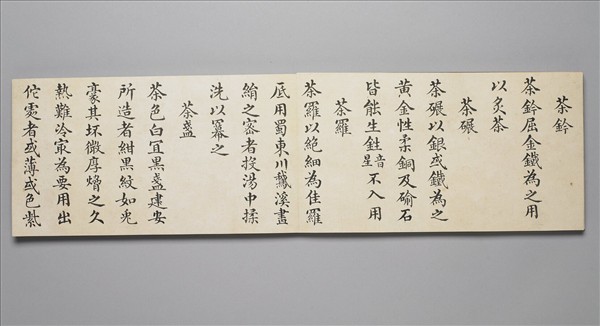 茶鈐
茶鈐屈金鐵為之用
以炙茶
茶碾
茶碾以銀或鐵為之
黃金性柔銅及喻石
皆能生鉎音星不入用
茶羅
茶羅以絕細為佳羅
底用蜀東川鵝溪畫
絹之密者投湯中揉
洗以羃之
茶盞
茶色白冝黑盞建安
所造者紺黑紋如兔
豪其坯微厚熁之久
熱難冷㝡為要用出
佗處者或薄或色紫